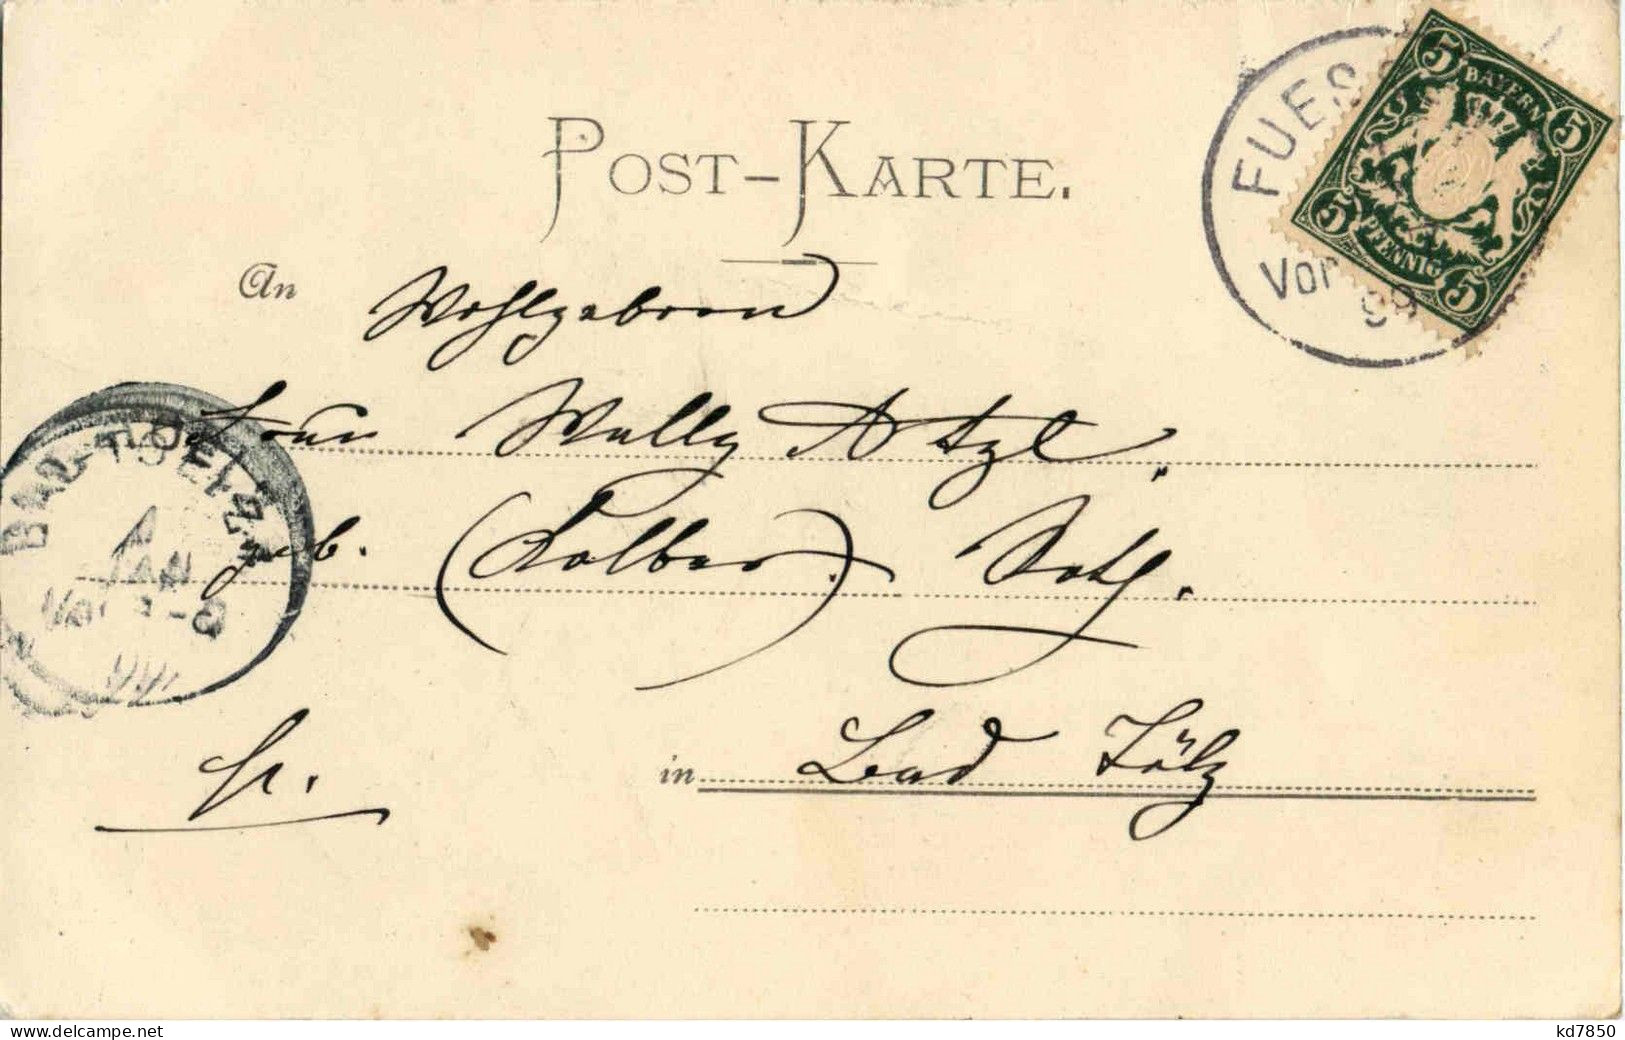 POST-KARTE.
FUES
5 BAYERN 5
5 PFENNIG 5
Vor 99
An Wohlgeboren
Frau Wally Atzl.
geb. (Kolber.)
BAD-TOELZ
JAN
in Bad Tölz
www.delcampe.net
kd7850